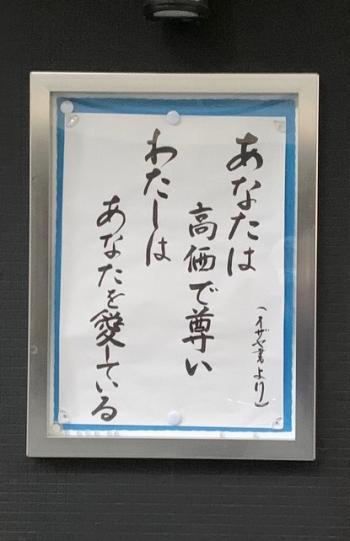 あなたは
高価で尊い
(イザヤ書より)
わたしは
あなたを愛している